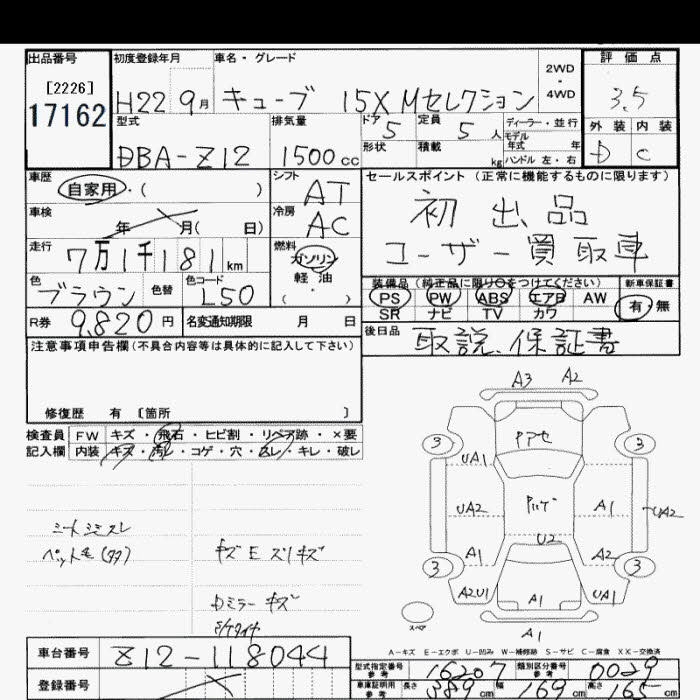 出品番号 初度登録年月 車名・グレード 2WD・4WD 評価点
[2226]
17162 H22 9月 キューブ 15X Mセレクション 3.5
型式 排気量 ドア 5 定員 5人 ディーラー・並行 外装 内装
モデル年式 年
DBA-Z12 1500cc 形状 積載 kg ハンドル 左・右 D C
車歴 シフト セールスポイント (正常に機能するものに限ります)
自家用・( ) AT 初出品
車検 年 月( 日) 冷房 AC ユーザー買取車
走行 7万1千181km 燃料 ガソリン
軽・油
( ・ )
色 色替 色コード 装備品 (純正品に限り○をつけてください) 新車保証書
ブラウン L50 PS PW ABS エアB AW 有・無
SR ナビ TV カワ
R券 9,820円 名変通知期限 月 日 後日品 取説、保証書
注意事項申告欄(不具合内容等は具体的に記入して下さい)
修復歴 有 [箇所 ]
検査員 FW キズ・飛石・ヒビ割・リペア跡・×要
記入欄 内装 キズ・汚レ・コゲ・穴・スレ・キレ・破レ
A3 A2
Pアセ
3 3
UA1
UA2 A1 UA2
U2
A1 A2
3 3
A2U1 A1 UA1
A1
スペア
シートシミスレ
ペット毛
キズEスリキズ
Dミラーキズ
A-キズ E-エクボ U-凹み W-補修跡 S-サビ C-腐食 XX-交換済
車台番号 Z12-118044 型式指定番号 参考 16207 類別区分番号 参考 0029
登録番号 車庫証明用 参考 長さ 389cm 幅 169cm 高さ 165cm